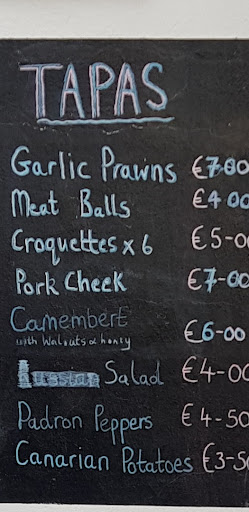 TAPAS
Garlic Prawns €7.00
Meat Balls €4 00
Croquettes x 6 €5-0
Pork Cheek €7-00
Camembert €6-00
with Walnuts & honey
Russian Salad €4-00
Padron Peppers €4-50
Canarian Potatoes €3-50